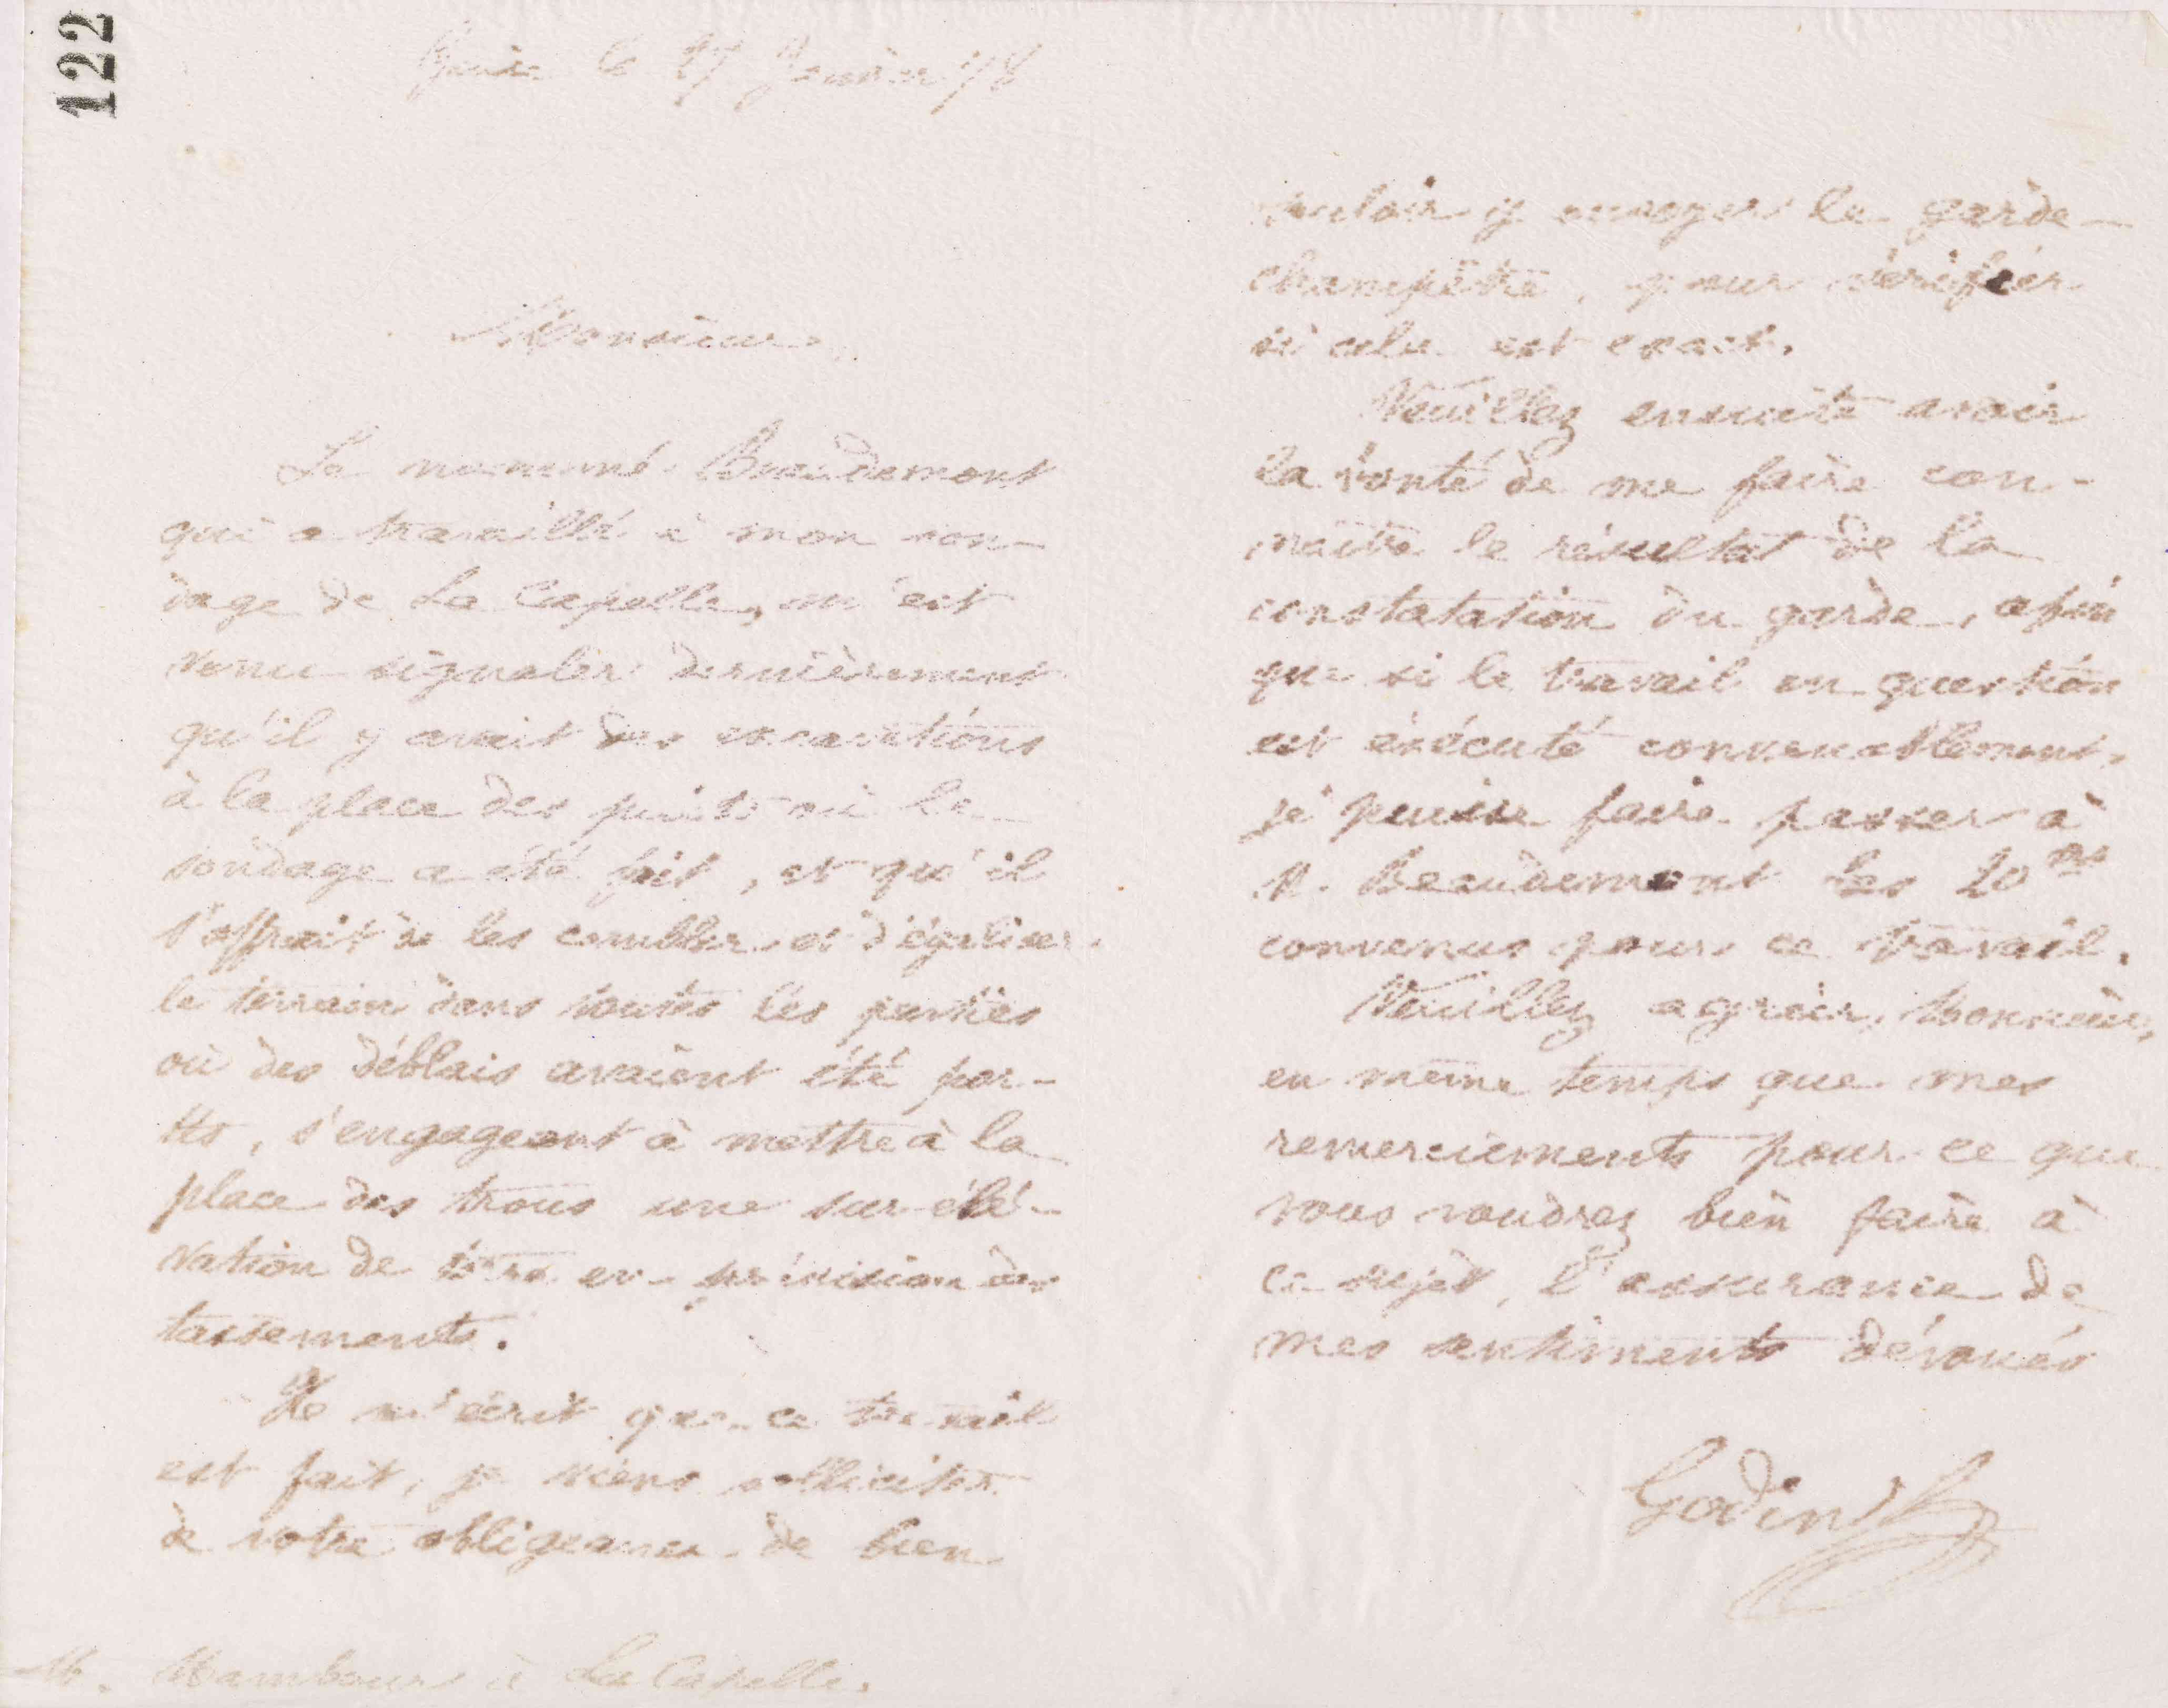 122
Guise le 27 Janvier 78
Monsieur,
Le nommé Beaudemont
qui a travaillé à mon son-
dage de La Capelle, m'est
venu signaler dernièrement
qu'il y avait des excavations
à la place des puits où le
sondage a été fait, et qu'il
s'offrait à les combler et d'égaliser
le terrain dans toutes les parties
où des déblais avaient été por-
tés, s'engageant à mettre à la
place des trous une sur-élé-
vation de terre en prévision des
tassements.
Il m'écrit que ce travail
est fait, je viens solliciter
de votre obligeance de bien
M. Mambour à La Capelle.
vouloir y envoyer le garde-
champêtre, pour vérifier
si cela est exact.
Veuillez ensuite avoir
la bonté de me faire con-
naître le résultat de la
constatation du garde, afin
que si le travail en question
est exécuté convenablement,
je puisse faire passer à
M. Beaudemont les 20 frs
convenus pour ce travail.
Veuillez agréer, Monsieur,
en même temps que mes
remerciements pour ce que
vous voudrez bien faire à
ce sujet, l'assurance de
mes sentiments dévoués
Godin